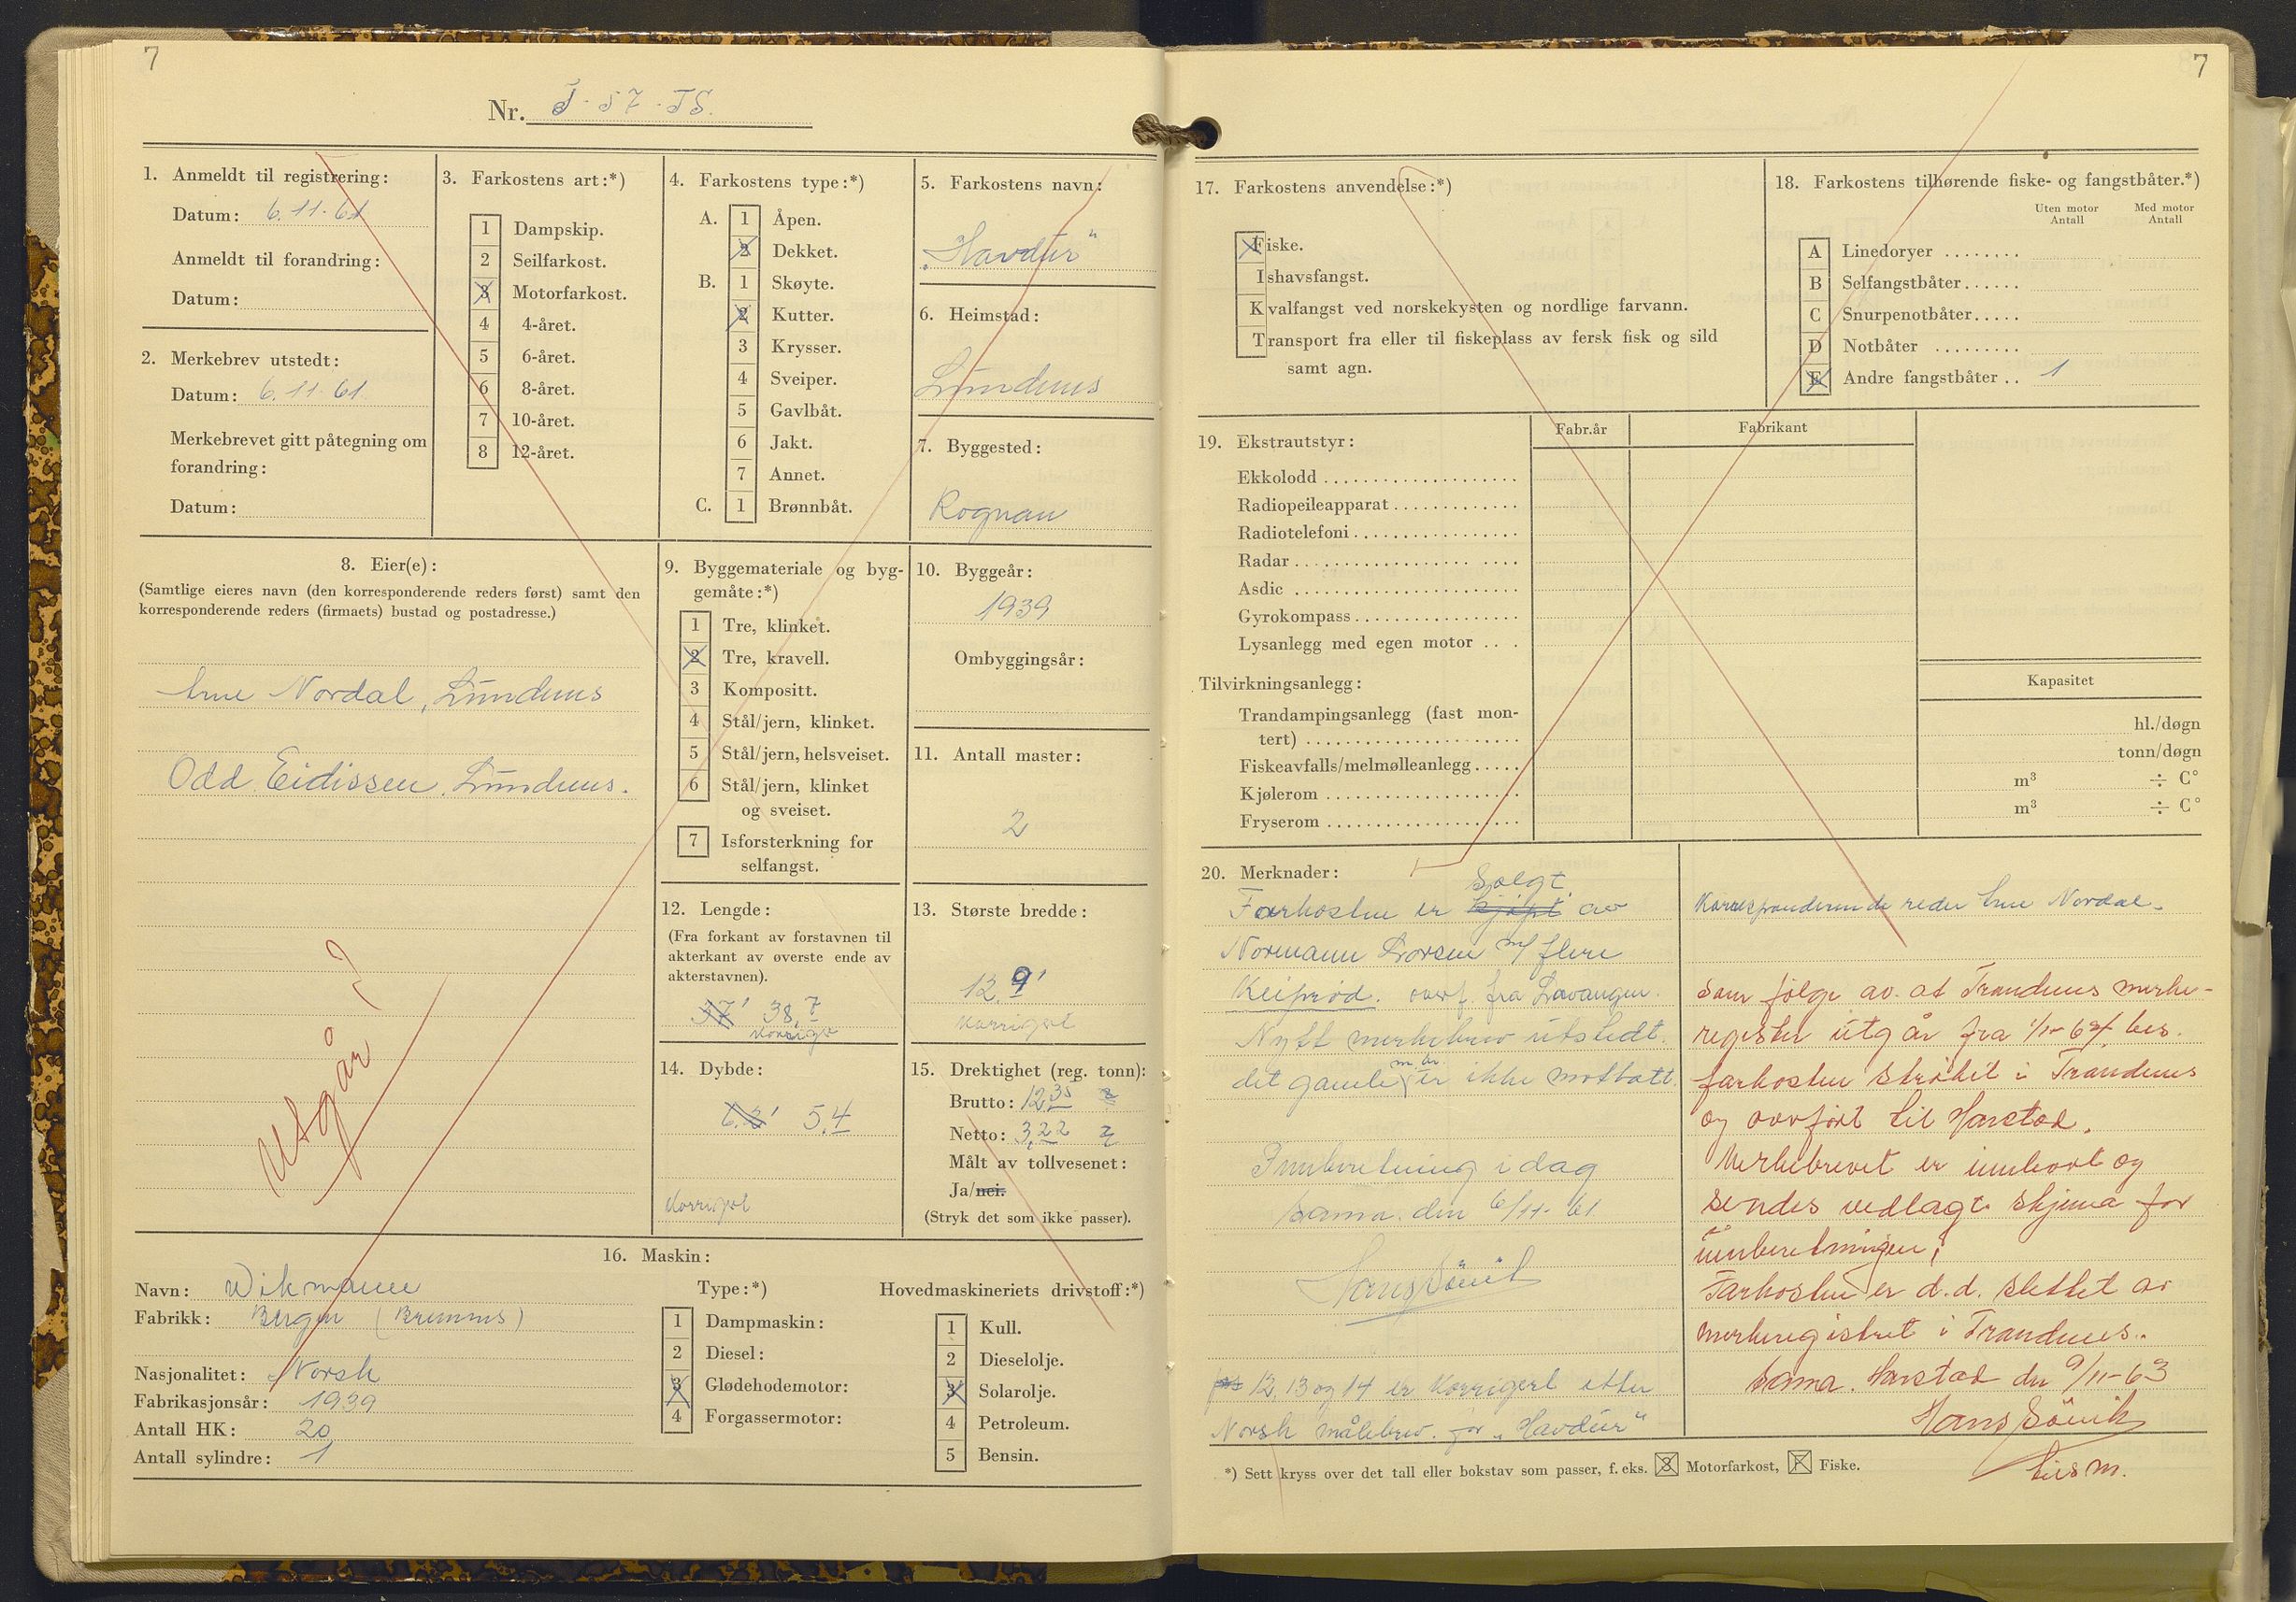 7
Nr. T-57-TS.
1. Anmeldt til registrering:
Datum: 6.11.61
Anmeldt til forandring:
Datum:
2. Merkebrev utstedt:
Datum: 6.11.61
Merkebrevet gitt påtegning om
forandring:
Datum:
3. Farkostens art:*)
1 Dampskip.
2 Seilfarkost.
3 Motorfarkost.
4 4-året.
5 6-året.
6 8-året.
7 10-året.
8 12-året.
4. Farkostens type:*)
A. 1 Åpen.
2 Dekket.
B. 1 Skøyte.
2 Kutter.
3 Krysser.
4 Sveiper.
5 Gavlbåt.
6 Jakt.
7 Annet.
C. 1 Brønnbåt.
5. Farkostens navn:
„Havdur"
6. Heimstad:
Lundenes
7. Byggested:
Rognan
8. Eier(e):
(Samtlige eieres navn (den korresponderende reders først) samt den
korresponderende reders (firmaets) bustad og postadresse.)
Arne Nordal, Lundenes
Odd Eidissen, Lundenes.
Utgår
9. Byggemateriale og byg-
gemåte:*)
1 Tre, klinket.
2 Tre, kravell.
3 Kompositt.
4 Stål/jern, klinket.
5 Stål/jern, helsveiset.
6 Stål/jern, klinket
og sveiset.
7 Isforsterkning for
selfangst.
10. Byggeår:
1939
Ombyggingsår:
11. Antall master:
2
12. Lengde:
(Fra forkant av forstavnen til
akterkant av øverste ende av
akterstavnen).
37' 38,7
Korriger
13. Største bredde:
12,9'
Korrigert
14. Dybde:
6.3' 5,4
Korrigert
15. Drektighet (reg. tonn):
Brutto: 12,35
Netto: 3,22
Målt av tollvesenet:
Ja/nei.
(Stryk det som ikke passer).
16. Maskin:
Navn: Wikmann
Fabrikk: Bergen (Bremnes)
Nasjonalitet: Norsk
Fabrikasjonsår: 1939
Antall HK: 20
Antall sylindre: 1
Type:*)
1 Dampmaskin:
2 Diesel:
3 Glødehodemotor:
4 Forgassermotor:
Hovedmaskineriets drivstoff:*)
1 Kull.
2 Dieselolje.
3 Solarolje.
4 Petroleum.
5 Bensin.
7
17. Farkostens anvendelse:*)
Fiske.
Ishavsfangst.
Kvalfangst ved norskekysten og nordlige farvann.
Transport fra eller til fiskeplass av fersk fisk og sild
samt agn.
18. Farkostens tilhørende fiske- og fangstbåter.*)
Uten motor Antall
Med motor Antall
A Linedoryer
B Selfangstbåter
C Snurpenotbåter
D Notbåter
E Andre fangstbåter 1
19. Ekstrautstyr:
Fabr.år
Fabrikant
Ekkolodd
Radiopeileapparat
Radiotelefoni
Radar
Asdic
Gyrokompass
Lysanlegg med egen motor
Tilvirkningsanlegg:
Kapasitet
Trandampingsanlegg (fast mon-
tert) hl./døgn
Fiskeavfalls/melmølleanlegg tonn/døgn
Kjølerom m³ ÷ C°
Fryserom m³ ÷ C°
20. Merknader:
Solgt.
Farkosten er kjöpt av
Normann Larsen m/ flere
overf. fra Lavangen.
Nytt merkebrev utstedt.
m.br.
det gamle er ikke mottatt.
Innberetning i dag
Sama. den 6/11-61
Hans Sövik
12, 13 og 14 er korrigert etter
Norsk målebrev. for „Havdur"
Korresponderende reder Arne Nordal.
Som fölge av at Trondenes merke-
register utgår fra 1/1-64 bes.
farkosten ströket i Trondenes
og overfört til Harstad.
Merkebrevet er innlevert og
sendes vedlagt skjema for
innberetningen.
Farkosten er d.d. slettet av
merkeregistret i Trondenes.
Sama. Harstad den 9/11-63
Hans Sövik
tils m.
*) Sett kryss over det tall eller bokstav som passer, f. eks. 3 Motorfarkost, F Fiske.